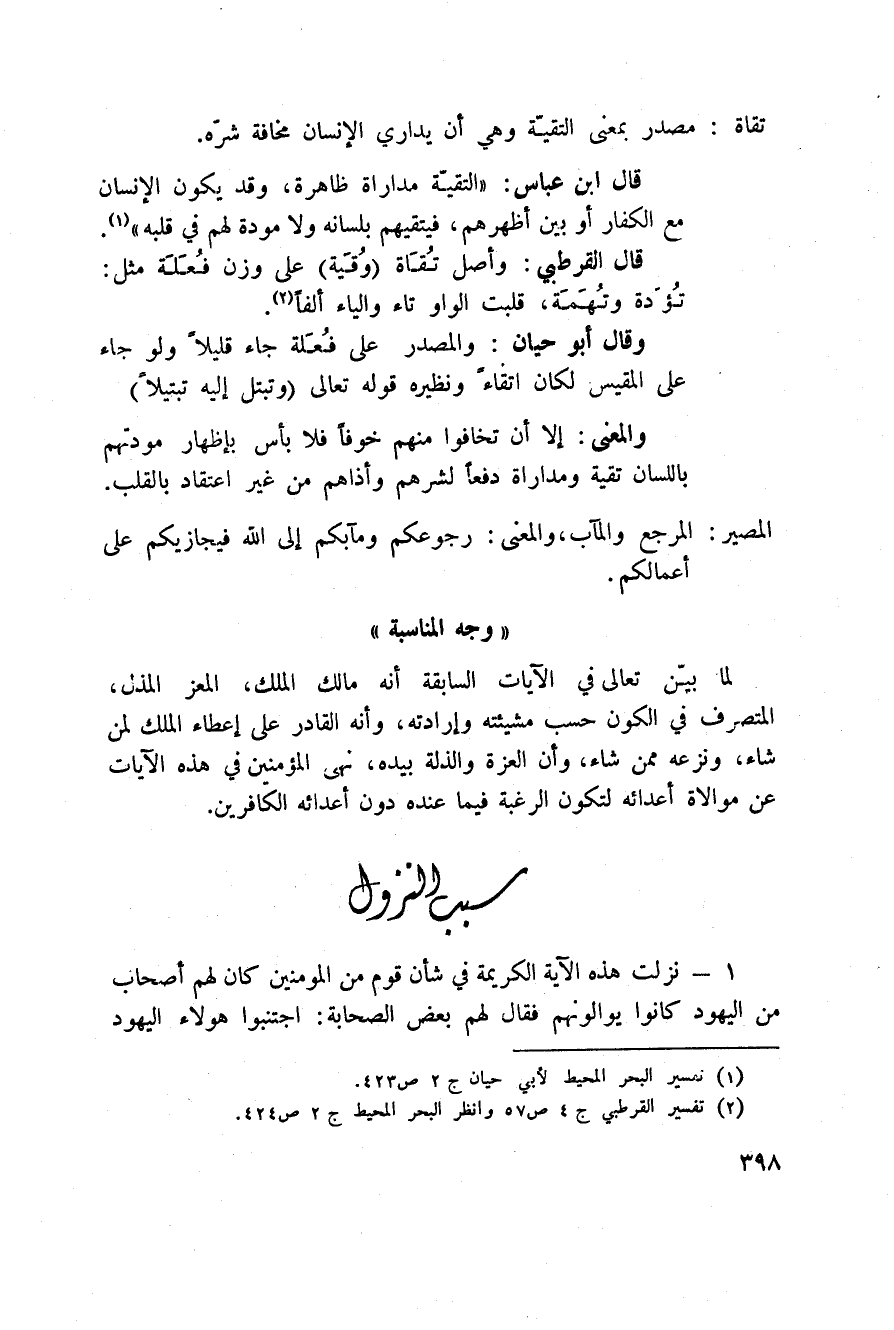 تقاة : مصدر بمعنى التقيّة وهي أن يداري الإنسان مخافة شرّه.
قال ابن عباس: «التقيّة مداراة ظاهرة، وقد يكون الإنسان
مع الكفار أو بين أظهرهم، فيتقيهم بلسانه ولا مودة لهم في قلبه»(١).
قال القرطبي: وأصل تُقَاة (وُقَية) على وزن فُعَلَة مثل:
تُؤَدة وتُهَمَة، قلبت الواو تاء والياء ألفاً(٢).
وقال أبو حيان : والمصدر على فُعَلة جاء قليلاً ولو جاء
على المقيس لكان اتقاءً ونظيره قوله تعالى (وتبتل إليه تبتيلاً)
والمعنى: إلا أن تخافوا منهم خوفاً فلا بأس بإظهار مودتهم
باللسان تقية ومداراة دفعاً لشرهم وأذاهم من غير اعتقاد بالقلب.
المصير: المرجع والمآب،والمعنى: رجوعكم ومآبكم إلى الله فيجازيكم على
أعمالكم.
« وجه المناسبة »
لما بيّن تعالى في الآيات السابقة أنه مالك الملك، المعز المذل،
المتصرف في الكون حسب مشيئته وإرادته، وأنه القادر على إعطاء الملك لمن
شاء، ونزعه ممن شاء، وأن العزة والذلة بيده، نهى المؤمنين في هذه الآيات
عن موالاة أعدائه لتكون الرغبة فيما عنده دون أعدائه الكافرين.
سبب النزول
١ – نزلت هذه الآية الكريمة في شأن قوم من المومنين كان لهم أصحاب
من اليهود كانوا يوالونهم فقال لهم بعض الصحابة: اجتنبوا هولاء اليهود
(١) تفسير البحر المحيط لأبي حيان ج ٢ ص٤٢٣.
(٢) تفسير القرطبي ج ٤ ص٥٧ وانظر البحر المحيط ج ٢ ص٤٢٤.
٣٩٨